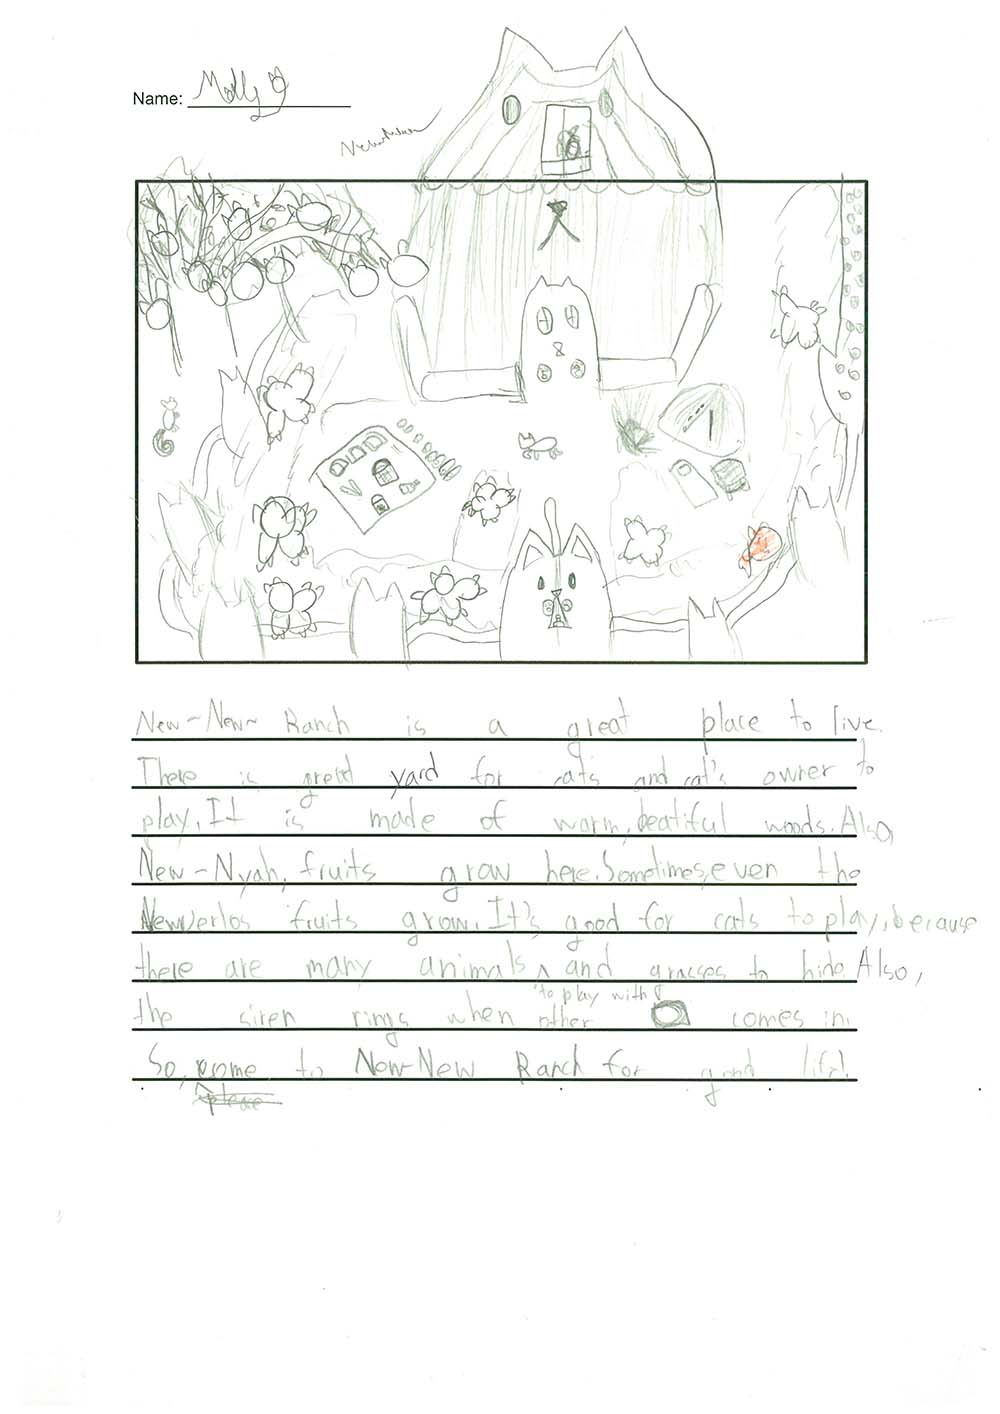 Name: Molly
New-New- Ranch is a great place to live.
There is great yard for cats and cat's owner to
play. It is made of warm, beatiful woods. Also,
New-Nyah, fruits grow here. Sometimes, even the
Newverlos fruits grow. It's good for cats to play, because
there are many animals ^ and grasses to hide. Also,
to play with
the siren rings when other comes in.
So, come to New-New Ranch for good life!
please